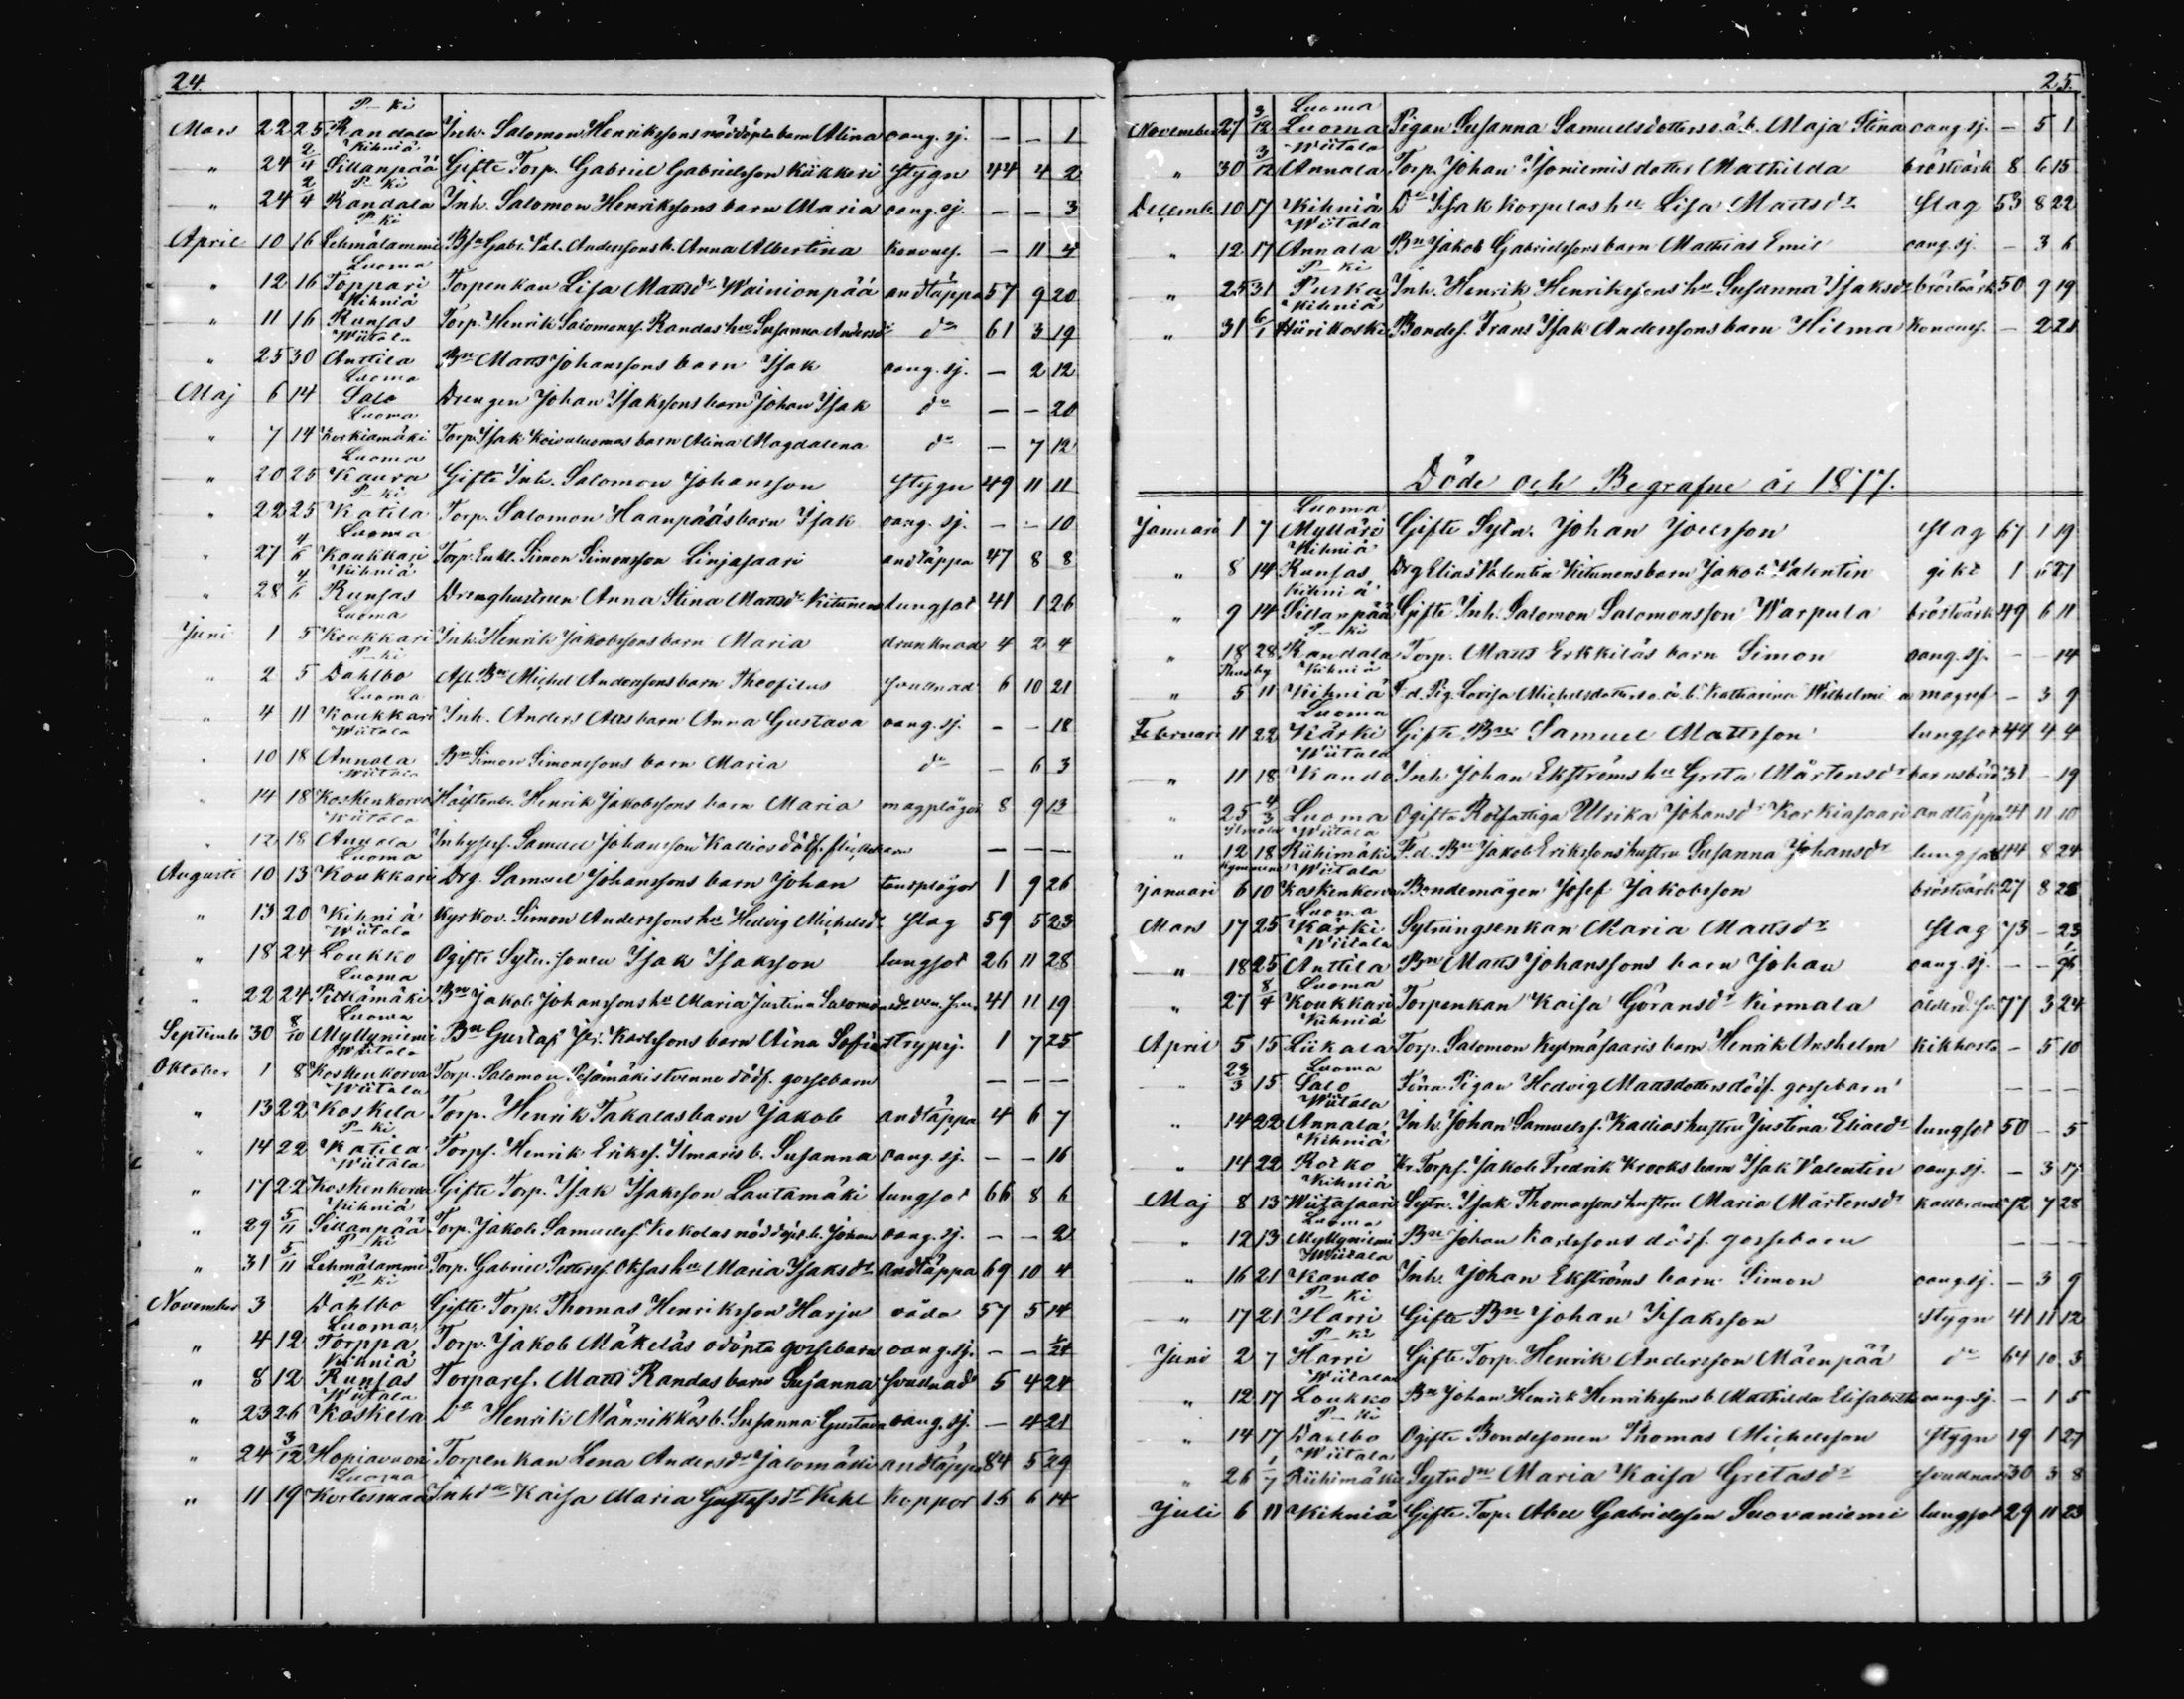 24
P-ki
Mars 22 25 Kandala Inh. Salomon Henrikssons nöddöpta barn Alina oang. sj. — — 1
Kihniä
" 24 2/4 Sillanpää Gifte Torp. Gabriel Gabrielsson Kiikkeri stygn 44 4 2
P-ki
" 24 2/4 Kandala Inh. Salomon Henrikssons barn Maria oang. sj. — — 3
P-ki
April 10 16 Lehmälammi Gabr. Val. Anderssons b. Anna Albertina konvuls. — 11 4
Luoma
" 12 16 Toppari Torpenkan Lisa Mattsdr Wainionpää andtäppa 57 9 20
Kihniä
" 11 16 Runsas Torp. Henrik Salomonss. Randas hu Susanna Andersdr do 61 3 19
Wiitala
" 25 30 Anttila Bn Matts Johanssons barn Isak oang. sj. — 2 12
Luoma
Maj 6 14 Salo Drengen Johan Isakssons barn Johan Isak do — — 20
Luoma
" 7 14 Korkiamäki Torp. Isak Koivuluomas barn Alina Magdalena do — 7 12
Luoma
" 20 25 Kaura Gifte Inh. Salomon Johansson stygn 49 11 11
P-ki
" 22 25 Katila Torp. Salomon Haanpääs barn Isak oang. sj. — — 10
Luoma
" 27 4/6 Koukkari Torp. Enkl. Simon Simonsson Linjasaari andtäppa 47 8 8
Kihniä
" 28 4/6 Runsas Drenghustrun Anna Stina Mattsdr Kitunen lungsot 41 1 26
Luoma
Juni 1 5 Koukkari Inh. Henrik Jakobssons barn Maria drunknad 4 2 4
P-ki
" 2 5 Dahlbo Afl. Bn Michel Anderssons barn Theofilus svullnad 6 10 21
Luoma
" 4 11 Koukkari Inh. Anders Alas barn Anna Gustava oang. sj. — — 18
Wiitala
" 10 18 Annala Bn Simon Simonssons barn Maria do — 6 3
Wiitala
" 14 18 Koskenkorva Henrik Jakobssons barn Maria magplågor 8 9 13
Wiitala
" 12 18 Annala Inhyses. Samuel Johansson Kallios dödf. flickebarn — — —
Luoma
Augusti 10 13 Koukkari Drg. Samuel Johanssons barn Johan 1 9 26
" 13 20 Kihniä Kyrkov. Simon Anderssons hu Hedvig Michelsdr slag 59 5 23
Wiitala
" 18 24 Loukko Ogifte Sytn. sonen Isak Isaksson lungsot 26 11 28
Luoma
" 22 24 Pitkämäki Bn Jakob Johanssons hu Maria Justina 41 11 19
Luoma
Septemb. 30 8/10 Myllyniemi Bn Gustaf Karlssons barn Aina Sofia strypsj. 1 7 25
Wiitala
Oktober 1 8 Koskenkorva Torp. Salomon Pesämäkis tvenne dödf. gossebarn — — —
Wiitala
" 13 22 Koskela Torp. Henrik Takalas barn Jakob andtäppa 4 6 7
P-ki
" 14 22 Katila Torps. Henrik Erikss. Ilmaris b. Susanna oang. sj. — — 16
Wiitala
" 17 22 Koskenkorva Gifte Torp. Isak Isaksson Lautamäki lungsot 66 8 6
Kihniä
" 29 5/11 Sillanpää Torp. Jakob Samuelss. Kokolas nöddöpt. b. Johan oang. sj. — — 2
P-ki
" 31 5/11 Lehmälammi Torp. Gabriel Petterss. Oksas hu Maria Isaksdr andtäppa 69 10 4
P-ki
November 3 Dahlbo Gifte Torp. Thomas Henriksson Harju våda 57 5 14
Luoma
" 4 12 Torppa Torp. Jakob Mäkeläs odöpta gossebarn oang. sj. — — 1/24
Kihniä
" 8 12 Runsas Torpares. Matts Randas barn Susanna svullnad 5 4 24
Wiitala
" 23 26 Koskela Do Henrik Männikkös b. Susanna Gustava oang. sj. — 4 21
" 24 3/12 Hopiavuori Torpenkan Lena Andersdr Jalomäki andtäppa 84 5 29
Luoma
" 11 19 Kortesmaa Inhdn Kaisa Maria Gustafsdr koppor 15 6 14
25.
Luoma
November 27 3/12 Luoma Pigan Susanna Samuelsdotters o.ä. b. Maja Stina oang. sj. — 5 1
Wiitala
" 30 3/12 Annala Torp. Johan Isoniemis dotter Mathilda bröstvärk 8 6 15
Decemb. 10 17 Kihniä Do Isak Korpelas hu Lisa Mattsdr slag 53 8 22
Wiitala
" 12 17 Annala Bn Jakob Gabrielssons barn Mathias Emil oang. sj. — 3 6
P-ki
" 25 31 Puska Inh. Henrik Henrikssons hu Susanna Isaksdr bröstvärk 50 9 19
Kihniä
" 31 6/1 Hiirikoski Bondes. Frans Isak Anderssons barn Hilma konvuls. — 2 21
Döde och Begrafne år 1877.
Luoma
Januari 1 7 Mylläri Gifte Sytn. Johan Joelsson slag 67 1 19
Kihniä
" 8 14 Runsas Drg Elias Valentin Kitunens barn Jakob Valentin gikt 1 6 27
Kihniä
" 9 14 Sillanpää Gifte Inh. Salomon Salomonsson Warpula bröstvärk 49 6 11
P-ki
" 18 28 Kandala Torp. Matts Erkkiläs barn Simon oang. sj. — — 14
Kihniä
" 5 11 Kihniä F.d. Pig. Lovisa Michelsdotters o.ä. b. Katharina Wilhelmina magref — 3 9
Luoma
Februari 11 22 Kärki Gifte Bn Samuel Mattsson lungsot 44 4 4
Wiitala
" 11 18 Kando Inh. Johan Ekströms hu Greta Mårtensdr barnsbörd 31 — 19
" 25 4/3 Luoma Ogifta Rotfattiga Ulrika Johansdr Korkiasaari andtäppa 41 11 10
Ilmola Wiitala
" 12 18 Riihimäki F.d. Bn Jakob Erikssons hustru Susanna Johansdr lungsot 44 8 24
Wiitala
Januari 6 10 Koskenkorva Bondemågen Josef Jakobsson bröstvärk 27 8 28
Luoma
Mars 17 25 Kärki Sytningsenkan Maria Mattsdr slag 73 — 23
Wiitala
" 18 25 Anttila Bn Matts Johanssons barn Johan oang. sj. — —
Luoma
" 27 8/4 Koukkari Torpenkan Kaisa Göransdr Kirmala 77 3 24
Kihniä
April 5 15 Liikala Torp. Salomon Kylmäsaaris barn Henrik Anshelm kikhosta — 5 10
Luoma
" 23/3 15 Salo Pigan Hedvig Mattsdotters dödf. gossebarn — — —
Wiitala
" 14 22 Annala Inh. Johan Samuelss. Kallios hustru Justina Eliasdr lungsot 50 — 5
Kihniä
" 14 22 Rotko Kr. Torps. Jakob Fredrik Krooks barn Isak Valentin oang. sj. — 3 17
Kihniä
Maj 8 13 Wiitasaari Sytn. Isak Thomassons hustru Maria Mårtensdr kallbrand 72 7 28
Luoma
" 12 13 Myllyniemi Bn Johan Karlssons dödf. gossebarn — — —
Wiitala
" 16 21 Kando Inh. Johan Ekströms barn Simon oang. sj. — 3 9
P-ki
" 17 21 Harri Gifte Bn Johan Isaksson stygn 41 11 12
P-ki
Juni 2 7 Harri Gifte Torp. Henrik Andersson Mäenpää do 64 10 3
Wiitala
" 12 17 Loukko Bn Johan Henrik Henrikssons b. Mathilda Elisabeth oang. sj. — 1 5
P-ki
" 14 17 Dahlbo Ogifte Bondesonen Thomas Michelsson stygn 19 1 27
Wiitala
" 26 1/7 Riihimäki Sytndn Maria Kaisa Gretasdr svullnad 30 3 8
Juli 6 11 Kihniä Gifte Torp. Abel Gabrielsson Luovaniemi lungsot 29 11 23